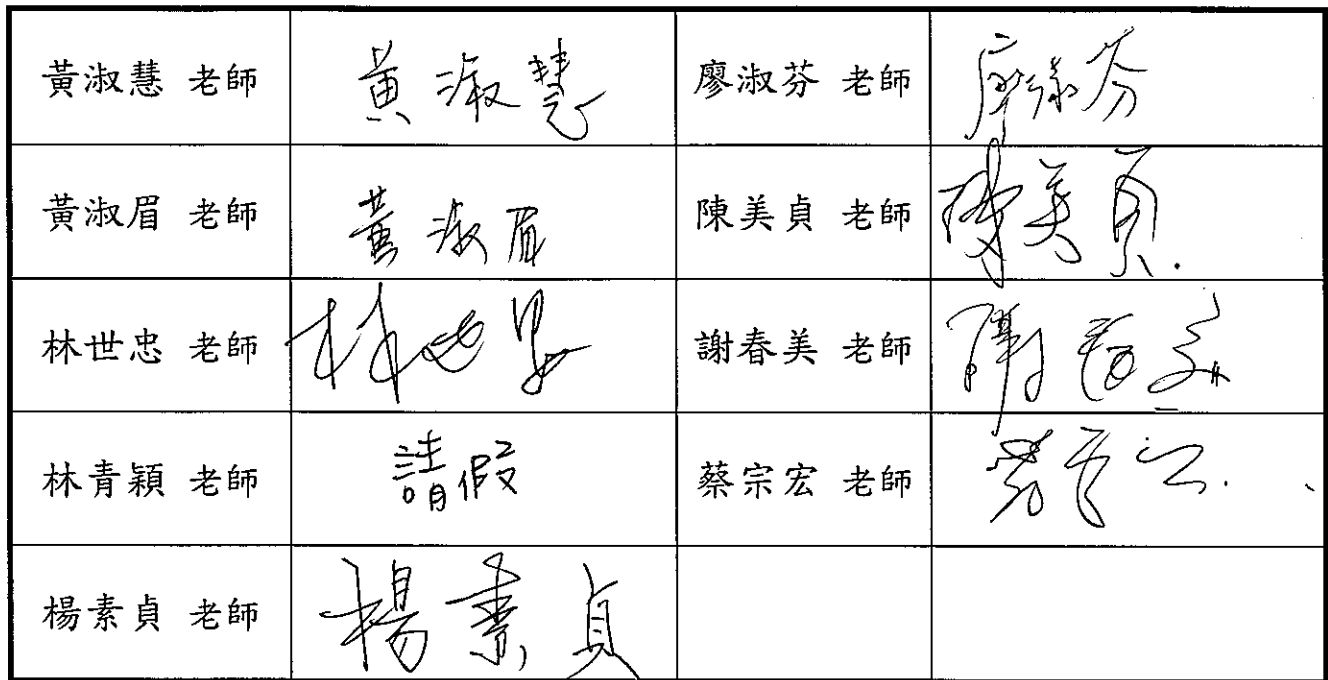 黃淑慧 老師 黃淑慧 廖淑芬 老師 廖淑芬
黃淑眉 老師 黃淑眉 陳美貞 老師 陳美貞
林世忠 老師 林世忠 謝春美 老師 謝春美
林青穎 老師 請假 蔡宗宏 老師 蔡宗宏
楊素貞 老師 楊素貞